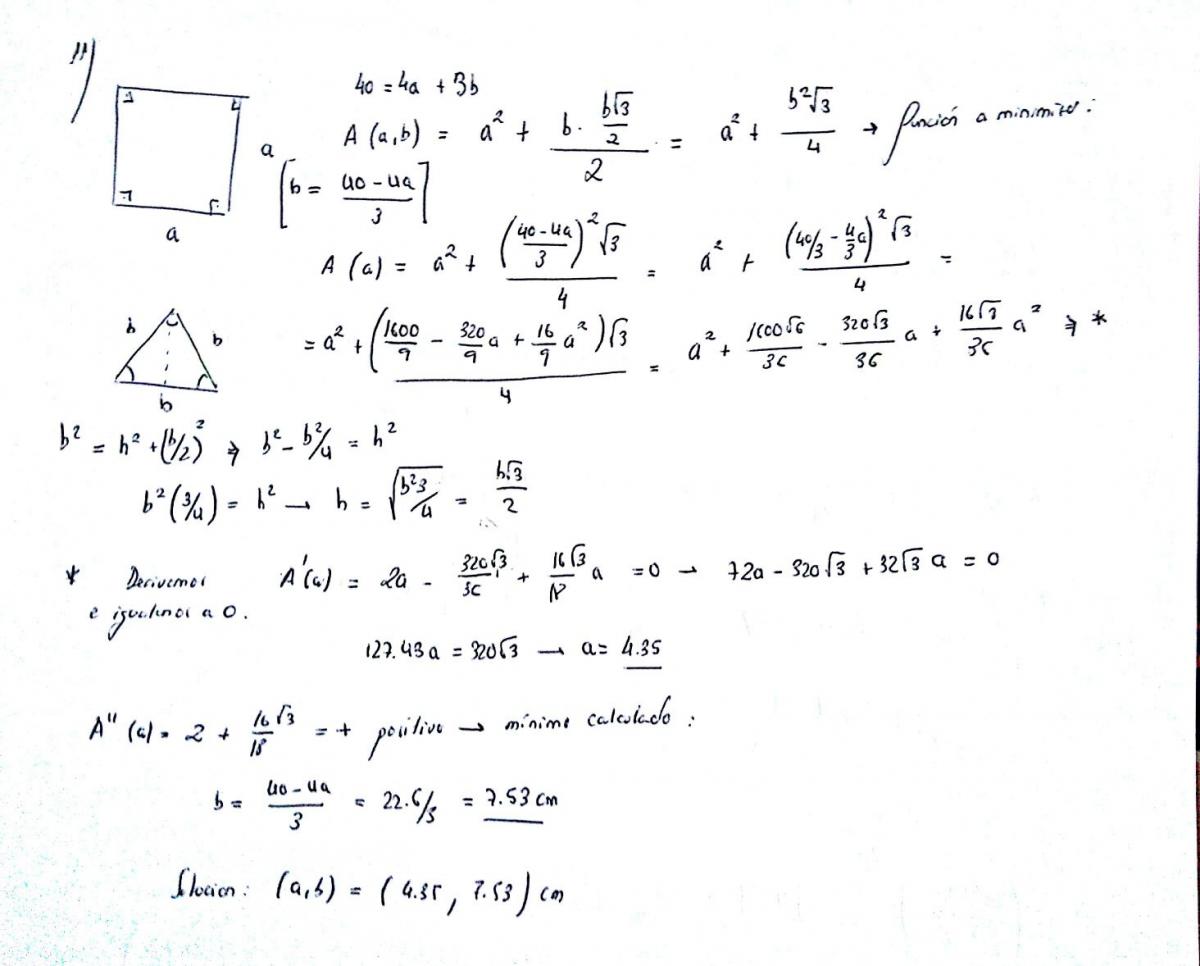 11)
40 = 4a + 3b
A (a,b) = a² + (b · (b√3/2))/2 = a² + b²√3/4 → función a minimizar:
a
[b = (40-4a)/3]
a
A (a) = a² + (((40-4a)/3)²√3)/4 = a² + ((40/3 - 4/3a)²√3)/4 =
b b
= a² + ((1600/9 - 320/9 a + 16/9 a²)√3)/4 = a² + 1600√6/36 - 320√3/36 a + 16√3/36 a² ⇒ *
b
b² = h² + (b/2)² ⇒ b² - b²/4 = h²
b² (3/4) = h² → h = √(b²3/4) = b√3/2
* Derivemos A'(a) = 2a - 320√3/36 + 16√3/18 a = 0 → 72a - 320√3 + 32√3 a = 0
e igualamos a 0.
127.43a = 320√3 → a = 4.35
A'' (a) = 2 + 16√3/18 = + positivo → mínimo calculado:
b = (40-4a)/3 = 22.6/3 = 7.53 cm
Solucion: (a,b) = (4.35, 7.53) cm